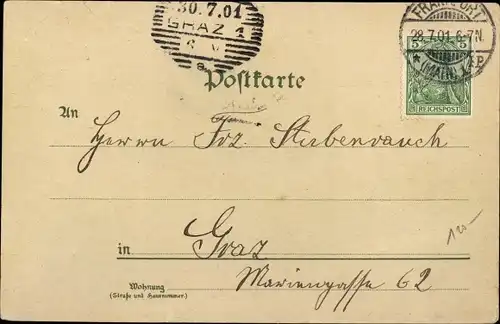 30.7.01
GRAZ 1
FRANKFURT
28.7.01.6-7N.
* (MAIN) 1.
5 5
REICHSPOST
Postkarte
An
Herrn Frz. Stubenrauch
in Graz
Mariengasse 62
Wohnung
(Straße und Hausnummer.)